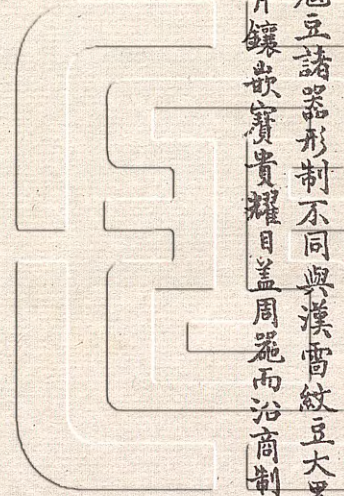 豆諸器形制不同與漢雷紋豆大
鑲嵌寶貴耀目盖周器而沿商制